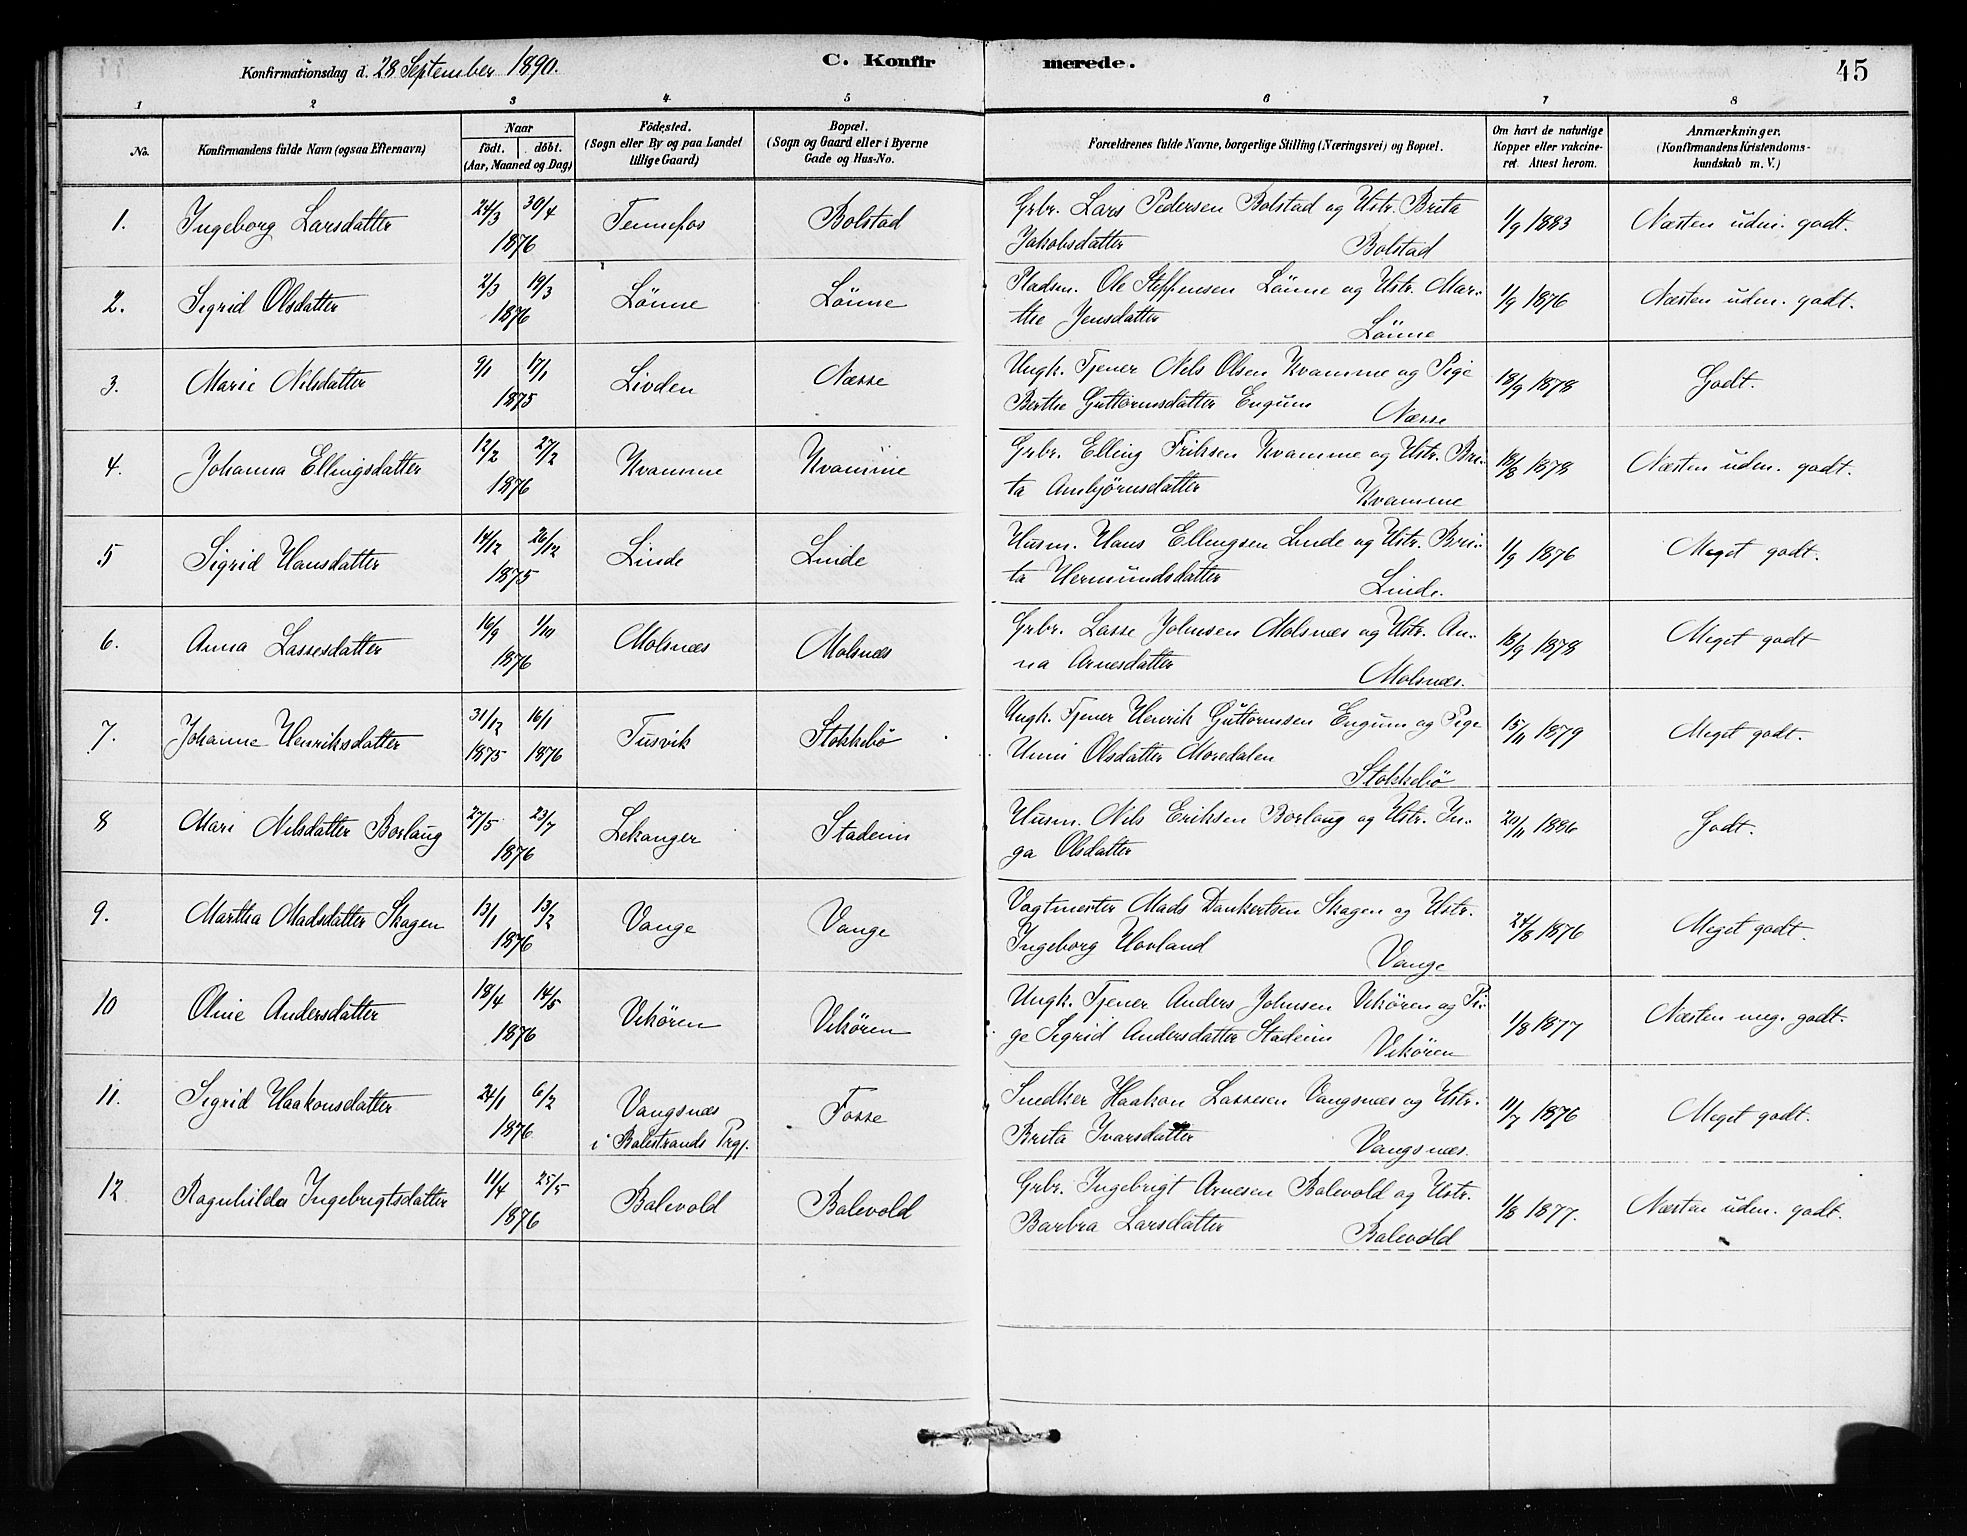 Konfirmationsdag d. 28 September 1890.
C. Konfirmerede.
45
1 2 3 4 5 6 7 8
No.
Konfirmandens fulde Navn (ogsaa Efternavn)
Naar
födt. döbt.
(Aar, Maaned og Dag)
Födested.
(Sogn eller By og paa Landet
tillige Gaard)
Bopæl.
(Sogn og Gaard eller i Byerne
Gade og Hus-No.
Forældrenes fulde Navne, borgerlige Stilling (Næringsvei) og Bopæl.
Om havt de naturlige
Kopper eller vakcine-
ret. Attest herom.
Anmærkninger.
(Konfirmandens Kristendoms-
kundskab m. V.)
1. Ingeborg Larsdatter 24/3 30/4 1876 Tennefos Bolstad
Grbr. Lars Pedersen Bolstad og Hstr. Brita
Jakobsdatter Bolstad
1/9 1883 Næsten udm. godt.
2. Sigrid Olsdatter 2/3 19/3 1876 Lönne Lönne
Pladsm. Ole Steffensen Lönne og Hstr. Mar-
the Jensdatter Lönne
1/9 1876 Næsten udm. godt.
3. Marie Nilsdatter 9/1 17/1 1875 Livden Næsse
Ungk. Tjener Nels Olsen Kvamme og Pige
Berthe Guttormsdatter Engum Næsse
18/9 1878 Godt.
4. Johanna Ellingsdatter 12/2 27/2 1876 Kvamme Kvamme
Grbr. Elling Eriksen Kvamme og Hstr. Bri-
ta Arnbjörnsdatter Kvamme
18/8 1878 Næsten udm. godt.
5 Sigrid Hansdatter 14/12 26/12 1875 Linde Linde
Husm. Hans Ellingsen Linde og Hstr. Bri-
ta Hermundsdatter Linde.
1/9 1876 Meget godt.
6. Anna Lassesdatter 16/9 1/10 1876 Molsnæs Molsnæs
Grbr. Lasse Johnsen Molsnæs og Hstr. An-
na Arnesdatter Molsnæs.
18/9 1878 Meget godt
7. Johanne Henriksdatter 31/12 1875 16/1 1876 Tusvik Stokkebö
Ungk. Tjener Henrik Guttormsen Engum og Pige
Unni Olsdatter Moredalen
Stokkebö
15/11 1879 Meget godt.
8 Mari Nilsdatter Borlaug 27/5 23/7 1876 Lekanger Stadeim
Husm. Nils Eriksen Borlaug og Hstr. In-
ga Olsdatter
20/11 1886 Godt.
9. Martha Madsdatter Skagen 13/1 13/2 1876 Vange Vange
Vagtmester Mads Dankertsen Skagen og Hstr.
Ingeborg Hovland Vange
24/8 1876 Meget godt.
10 Oline Andersdatter 18/4 14/5 1876 Vikören Vikören
Ungk. Tjener Anders Johnsen Vikören og Pi-
ge Sigrid Andersdatter Stadeim Vikören
1/8 1877 Næsten meg. godt.
11. Sigrid Haakonsdatter 24/1 6/2 1876 Vangsnæs
i Balestrands Prgj. Fosse
Snedker Haakon Lassesen Vangsnæs og Hstr.
Brita Ivarsdatter Vangsnæs.
11/7 1876 Meget godt.
12 Ragnhilda Ingebrigtsdatter 11/4 25/5 1876 Balevold Balevold
Grbr. Ingebrigt Arnesen Balevold og Hstr.
Barbra Larsdatter Balevold
1/8 1877. Næsten udm. godt.